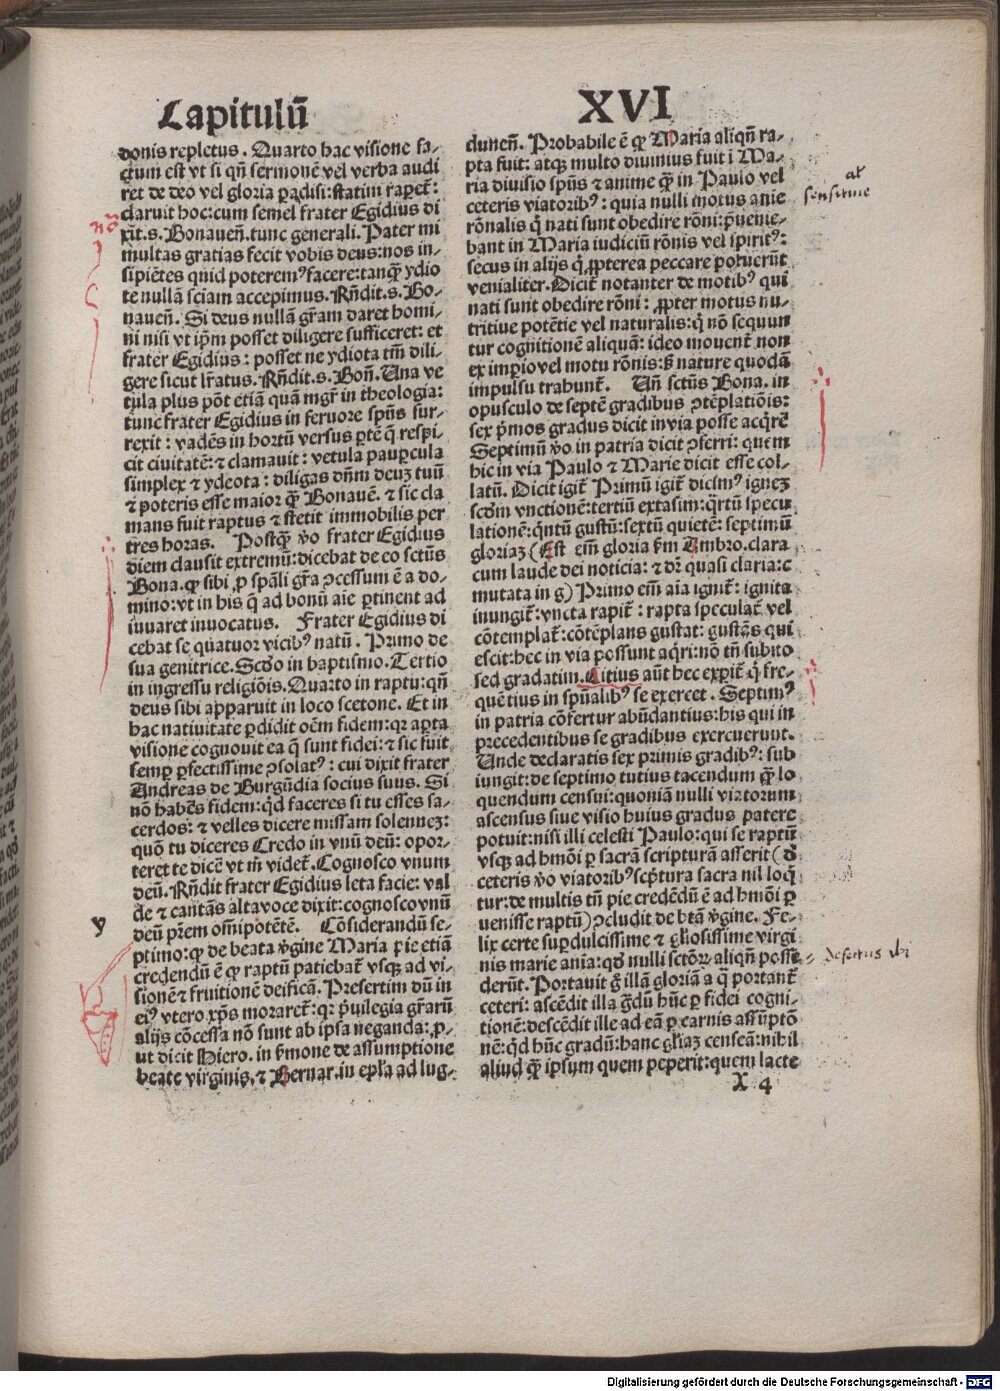 Capitulū
XVI
donis repletus. Quarto hac visione fa-
ctum est vt si qñ sermonē vel verba audi
ret de deo vel gloria ꝑadisi: statim rapet̄:
claruit hoc: cum semel frater Egidius di
xit. s. Bonaueñ. tunc generali. Pater mi
multas gratias fecit vobis deus: nos in-
sipiētes quid poterem⁹ facere: tanqꝫ ydio
te nullā sciam accepimus. Rñdit. s. Bo-
naueñ. Si deus nullā grām daret homi-
ni nisi vt ip̄m posset diligere sufficeret: et
frater Egidius: posset ne ydiota tm̄ dili-
gere sicut lr̄atus. Rñdit. s. Boñ. Una ve
tula plus pōt etiā quā mgr̄ in theologia:
tunc frater Egidius in feruore spūs sur-
rexit: vadēs in hortū versus ꝑtē q̄ respi-
cit ciuitatē: ⁊ clamauit: vetula paupcula
simplex ⁊ ydeota: diligas dñm deuꝫ tuū
⁊ poteris esse maior qꝫ Bonauē. ⁊ sic cla
mans fuit raptus ⁊ stetit immobilis per
tres horas. Postqꝫ v̄o frater Egidius
diem clausit extremū: dicebat de eo sctūs
Bona. ꝙ sibi ꝓ spāli gr̄a ↄcessum ē a do-
mino: vt in his q̄ ad bonū aīe ꝑtinent ad
iuuaret inuocatus. Frater Egidius di
cebat se quatuor vicib⁹ natū. Primo de
sua genitrice. Scd̄o in baptismo. Tertio
in ingressu religiōis. Quarto in raptu: qñ
deus sibi apparuit in loco scetone. Et in
hac natiuitate ꝑdidit oēm fidem: qꝛ aꝑta
visione cognouit ea q̄ sunt fidei: ⁊ sic fuit
semꝑ ꝑfectissime ↄsolat⁹: cui dixit frater
Andreas de Burgūdia socius suus. Si
nō habēs fidem: qd̄ faceres si tu esses sa-
cerdos: ⁊ velles dicere missam solenneꝫ:
quō tu diceres Credo in vnū deū: opor-
teret te dicē vt m̄ videt̄. Cognosco vnum
deū. Rñdit frater Egidius leta facie: val
de ⁊ cantās alta voce dixit: cognosco vnū
deū pr̄em om̄ipotētē. Cōsiderandū se-
ptimo: ꝙ de beata v̄gine Maria pie etiā
credendū ē ꝙ raptū patiebat̄ vsqꝫ ad vi-
sionē ⁊ fruitionē deificā. Presertim dū in
ei⁹ vtero xp̄s moraret̄: qꝛ p̄uilegia gr̄arū
alijs cōcessa nō sunt ab ipsa neganda: ꝓ-
ut dicit Hiero. in s̄mone de assumptione
beate virginis, ⁊ Bernar. in epl̄a ad lug-
duneñ. Probabile ē ꝙ Maria aliqñ ra-
pta fuit: atqꝫ multo diuinius fuit ī Ma-
ria diuisio spūs ⁊ anime qꝫ in Paulo vel
ceteris viatorib⁹: quia nulli motus anīe
rōnalis q̄ nati sunt obedire rōni: p̄uenie-
bant in Maria iudiciū rōnis vel spirit⁹:
secus in alijs q̄ ꝓpterea peccare potuerūt
venialiter. Dicit̄ notanter de motib⁹ qui
nati sunt obedire rōni: ꝓpter motus nu-
tritiue potētie vel naturalis: q̄ nō sequun
tur cognitionē aliquā: ideo mouent̄ non
ex imperio vel motu rōnis: sꝫ nature quodā
impulsu trahunt̄. Uñ sctūs Bona. in
opusculo de septē gradibus ↄtēplatiōis:
sex p̄mos gradus dicit in via posse acq̄rē
Septimū v̄o in patria dicit ↄferri: quem
hic in via Paulo ⁊ Marie dicit esse col-
latū. Dicit igit̄ Primū igit̄ dicim⁹ igneꝫ
scd̄m vnctionē: tertiū extasim: q̄rtū specu
lationē: q̄ntū gustū: sextū quietē: septimū
gloriaꝫ (Est em̄ gloria s̄m Ambro. clara
cum laude dei noticia: ⁊ dr̄ quasi claria: c
mutata in g) Primo em̄ aīa ignit̄: ignita
inungit̄: vncta rapit̄: rapta speculat̄ vel
cōtemplat̄: cōtēplans gustat: gustās qui
escit: hec in via possunt aq̄ri: nō tn̄ subito
sed gradatim. Citius aūt hec exꝑit̄ q̄ fre-
quētius in sp̄ualib⁹ se exercet. Septim⁹
in patria cōfertur abūdantius: his qui in
precedentibus se gradibus exercuerunt.
Unde declaratis sex primis gradib⁹: sub
iungit: de septimo tutius tacendum qꝫ lo
quendum censui: quoniā nulli viatorum
ascensus siue visio huius gradus patere
potuit: nisi illi celesti Paulo: qui se raptū
vsqꝫ ad hmōi ꝑ sacrā scripturā asserit (d̄
ceteris v̄o viatorib⁹ scp̄tura sacra nil loq̄
tur: de multis tn̄ pie credēdū ē ad hmōi ꝑ
uenisse raptū) ↄcludit de btā v̄gine. Fe-
lix certe suꝑdulcissime ⁊ gl̄iosissime virgi
nis marie anīa: qd̄ nulli sctōꝝ aliqñ posse
derūt. Portauit g̊ illā gloriā a q̄ portant̄
ceteri: ascēdit illa g̊dū hūc ꝑ fidei cogni-
tionē: descēdit ille ad eā ꝑ carnis assūptō
nē: qd̄ hūc gradū: hanc gl̄iaꝫ censeā: nihil
aliud qꝫ ipsum quem peperit: quem lacte
X 4
y
Digitalisierung gefördert durch die Deutsche Forschungsgemeinschaft - DFG